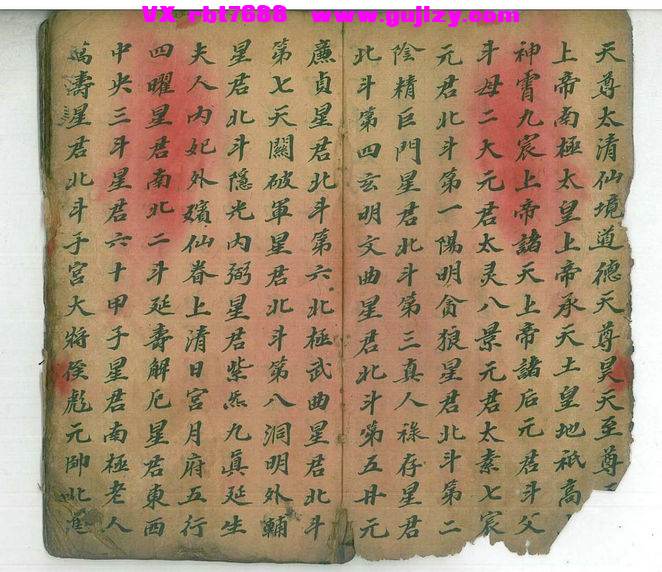 VX rbt7688 www.gujizy.com
天尊太清仙境道德天尊昊天至尊
上帝南極太皇上帝承天土皇地祇高
神霄九宸上帝諸天上帝諸后元君斗父
斗母二大元君太灵八景元君太素七宸
元君北斗第一陽明貪狼星君北斗第二
陰精巨門星君北斗第三真人祿存星君
北斗第四玄明文曲星君北斗第五丹元
廉貞星君北斗第六北極武曲星君北斗
第七天關破軍星君北斗第八洞明外輔
星君北斗隐光内弼星君紫炁九真延生
夫人内妃外嬪仙眷上清日宮月府五行
四曜星君南北二斗延壽解厄星君東西
中央三斗星君六十甲子星君南極老人
星君北斗子宮大將侯彪元帥北